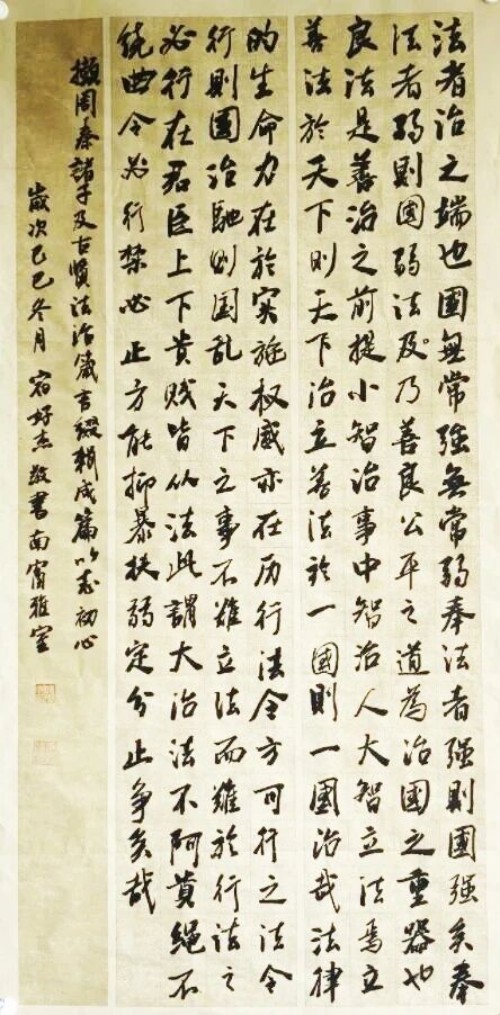 法者治之端也国無常强無常弱奉法者强则国强矣奉
法者弱则国弱法及乃善良公平之道為治國之重器也
良法是善治之前提小智治事中智治人大智立法焉立
善法於天下则天下治立善法於一國则一國治哉法律
的生命力在於实施权威亦在历行法令方可行之法令
行则國治馳则国乱天下之事不难立法而难於行法之
必行在君臣上下贵贱皆从法此謂大治法不阿貴绳不
绕曲令必行禁必止方能抑暴扶弱定分止争矣哉
撷周秦諸子及古賢法治箴言缀辑成篇以志初心
歲次己巳冬月宿好杰敬書南窗雅室